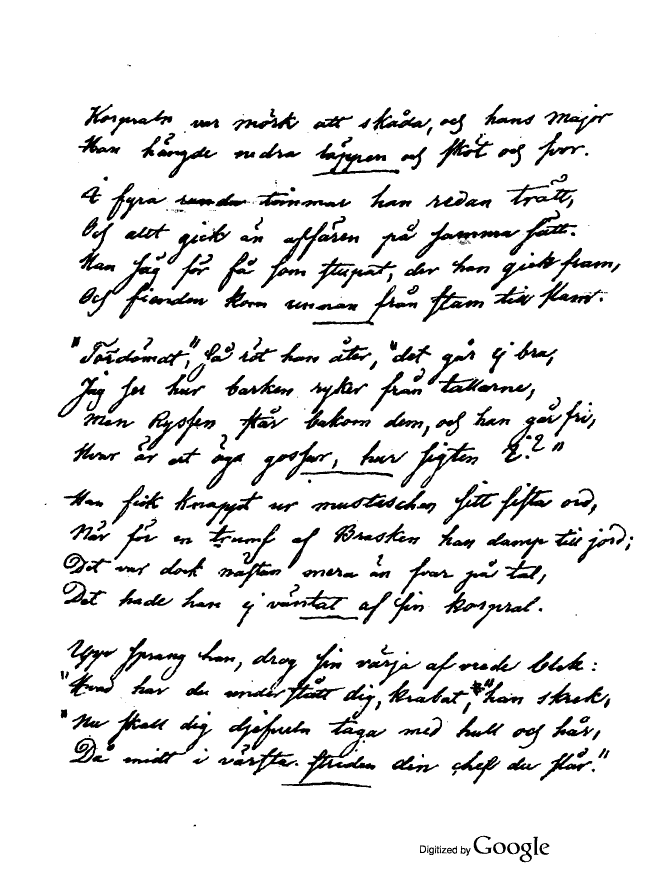 Korpraln var mörk att skåda, och hans major
Han hängde nedra läppen och sköt och svor.
I fyra runda timmar han redan trätt,
Och allt gick än affären på samma sätt.
Han såg för få som stupat, der han gick fram,
Och fienden kom undan från stam till stam.
"Fördömdt," så röt han åter, "det går ej bra,
Jag ser hur barken ryker från tallarne,
Men Ryssen står bakom dem, och han går fri,
Hvar är ert öga gossar, hur sigten I?"
Han fick knappt ur mustaschen sitt sista ord,
När för en trumf af Brasken han damp till jord;
Det var dock nästan mera än svar på tal,
Det hade han ej väntat af sin korpral.
Upp sprang han, drog sin värja af vrede blek:
"Hvad har du understått dig, krabat," han skrek,
"Nu skall dig djefveln taga med hull och hår,
Då midt i värsta striden din chef du slår."
Digitized by Google